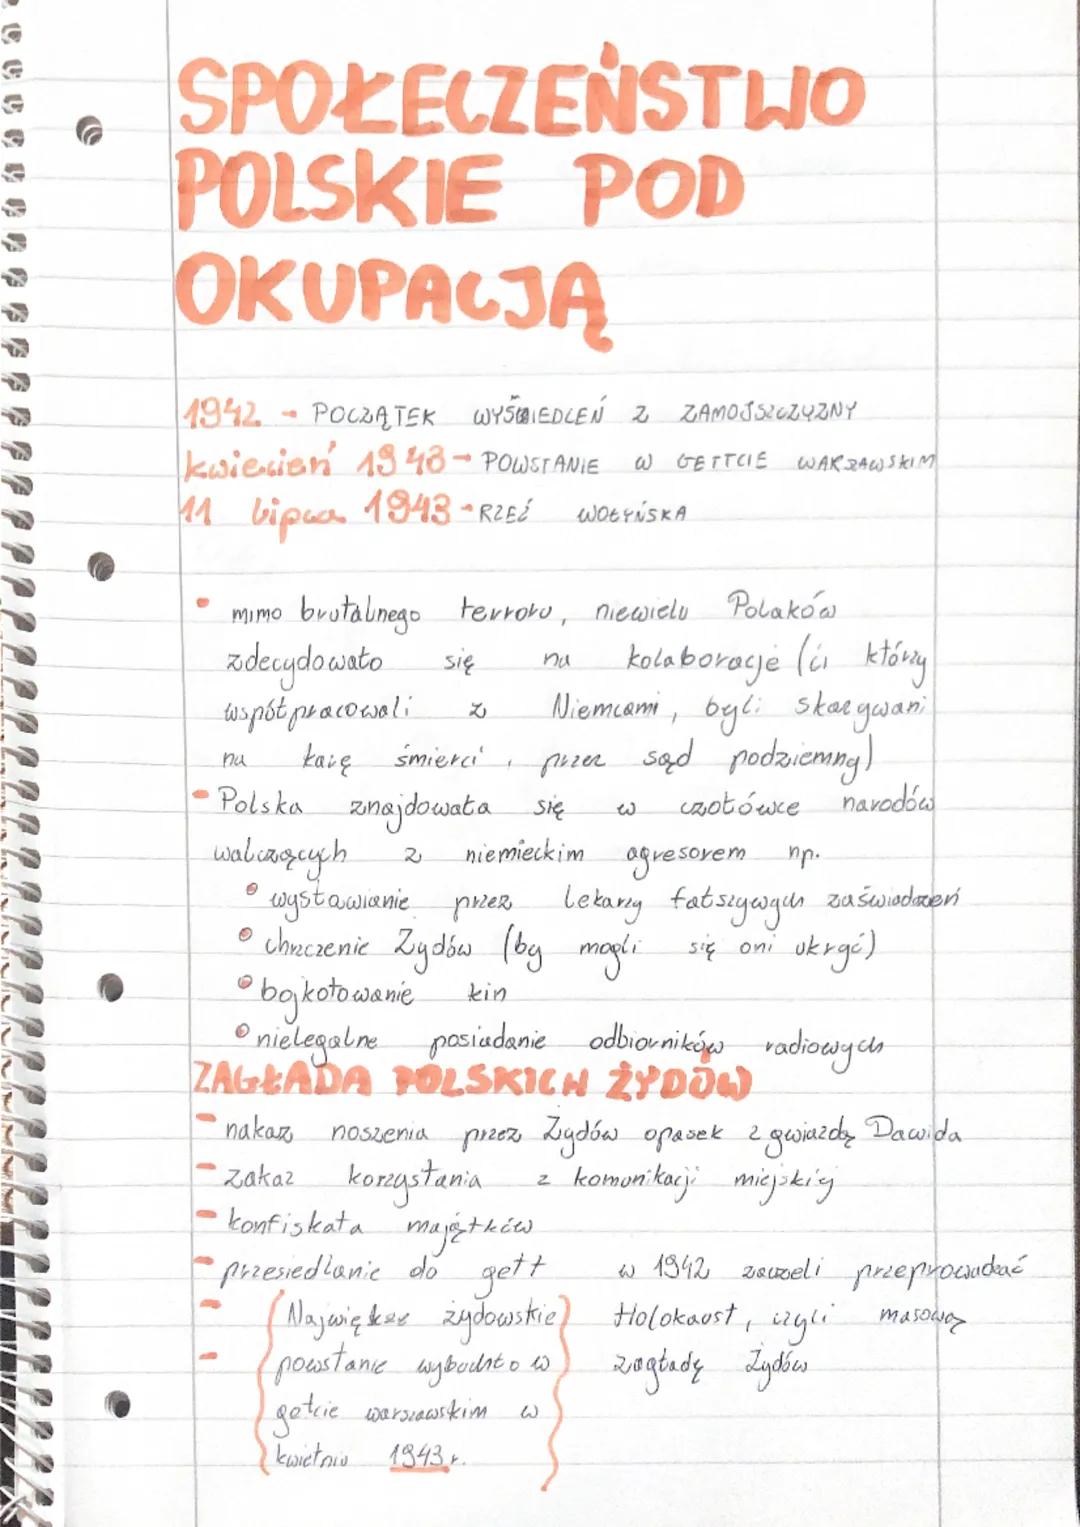 SPOŁECZEŃSTWO
POLSKIE POD
OKUPACJĄ
1942 - POCZĄTEK WYSIEDLEŃ Z ZAMOJSZCZYZNY
kwiecień 1943 - POWSTANIE W GETTCIE WARSZAWSKIM
11 lipca 1943 - RZEŹ WOŁYŃSKA
- mimo brutalnego terroru, niewielu Polaków
zdecydowało się na kolaboracje (ci którzy
współpracowali z Niemcami, byli skazywani
na karę śmierci, przez sąd podziemny)
- Polska znajdowała się w czołówce narodów
walczących z niemieckim agresorem np.
• wystawianie przez lekarzy fałszywych zaświadczeń
• chrzczenie Żydów (by mogli się oni ukryć)
• bojkotowanie kin
• nielegalne posiadanie odbiorników radiowych
ZAGŁADA POLSKICH ŻYDÓW
- nakaz noszenia przez Żydów opasek z gwiazdą Dawida
- zakaz korzystania z komunikacji miejskiej
- konfiskata majątków
- przesiedlanie do gett
- (Największe żydowskie)
- (powstanie wybuchło w)
getcie warszawskim w
kwietniu 1943 r.
w 1942 zaczęli przeprowadzać
Holokaust, czyli masową
zagładę Żydów